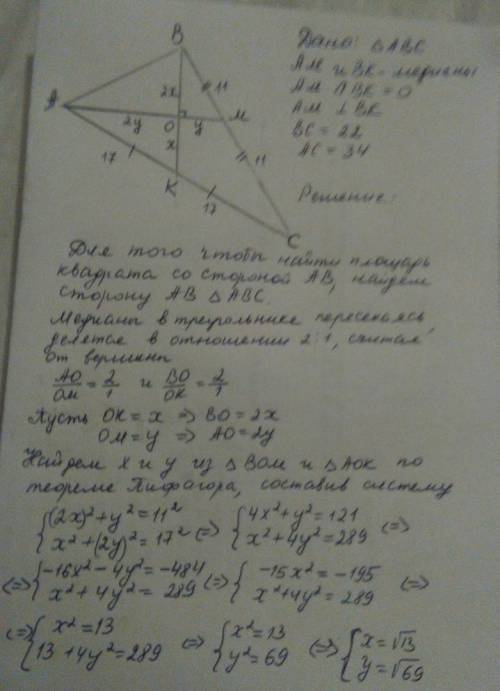 B
Дано: △ABC
AM и BK - медианы
AM ∩ BK = O
AM ⊥ BK
BC = 22
AC = 34
Решение:
2x
11
A
M
2y
O
y
17
x
11
K
17
C
Для того чтобы найти площадь
квадрата со стороной AB, найдем
сторону AB △ABC.
Медианы в треугольнике пересекаясь,
делятся в отношении 2:1, считая
от вершины
AO/OM = 2/1 и BO/OK = 2/1
Пусть OK = x => BO = 2x
OM = y => AO = 2y
Найдем x и y из △BOM и △AOK по
теореме Пифагора, составив систему
{(2x)² + y² = 11² (=> {4x² + y² = 121 (=>
{x² + (2y)² = 17² {x² + 4y² = 289
(=> {-16x² - 4y² = -484 (=> {-15x² = -195 (=>
{x² + 4y² = 289 {x² + 4y² = 289
(=> {x² = 13 (=> {x² = 13 (=> {x = √13
{13 + 4y² = 289 {y² = 69 {y = √69